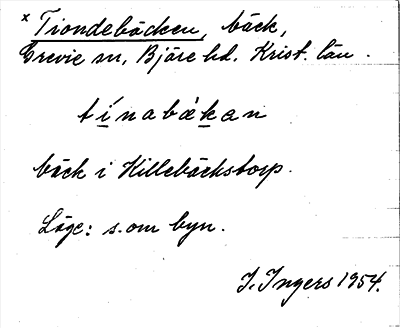 × Tiondebäcken, bäck,
Grevie sn, Bjäre hd. Krist. län.
tínabækan
bäck i Killebäckstorp.
Läge: s.om byn.
I. Ingers 1954.